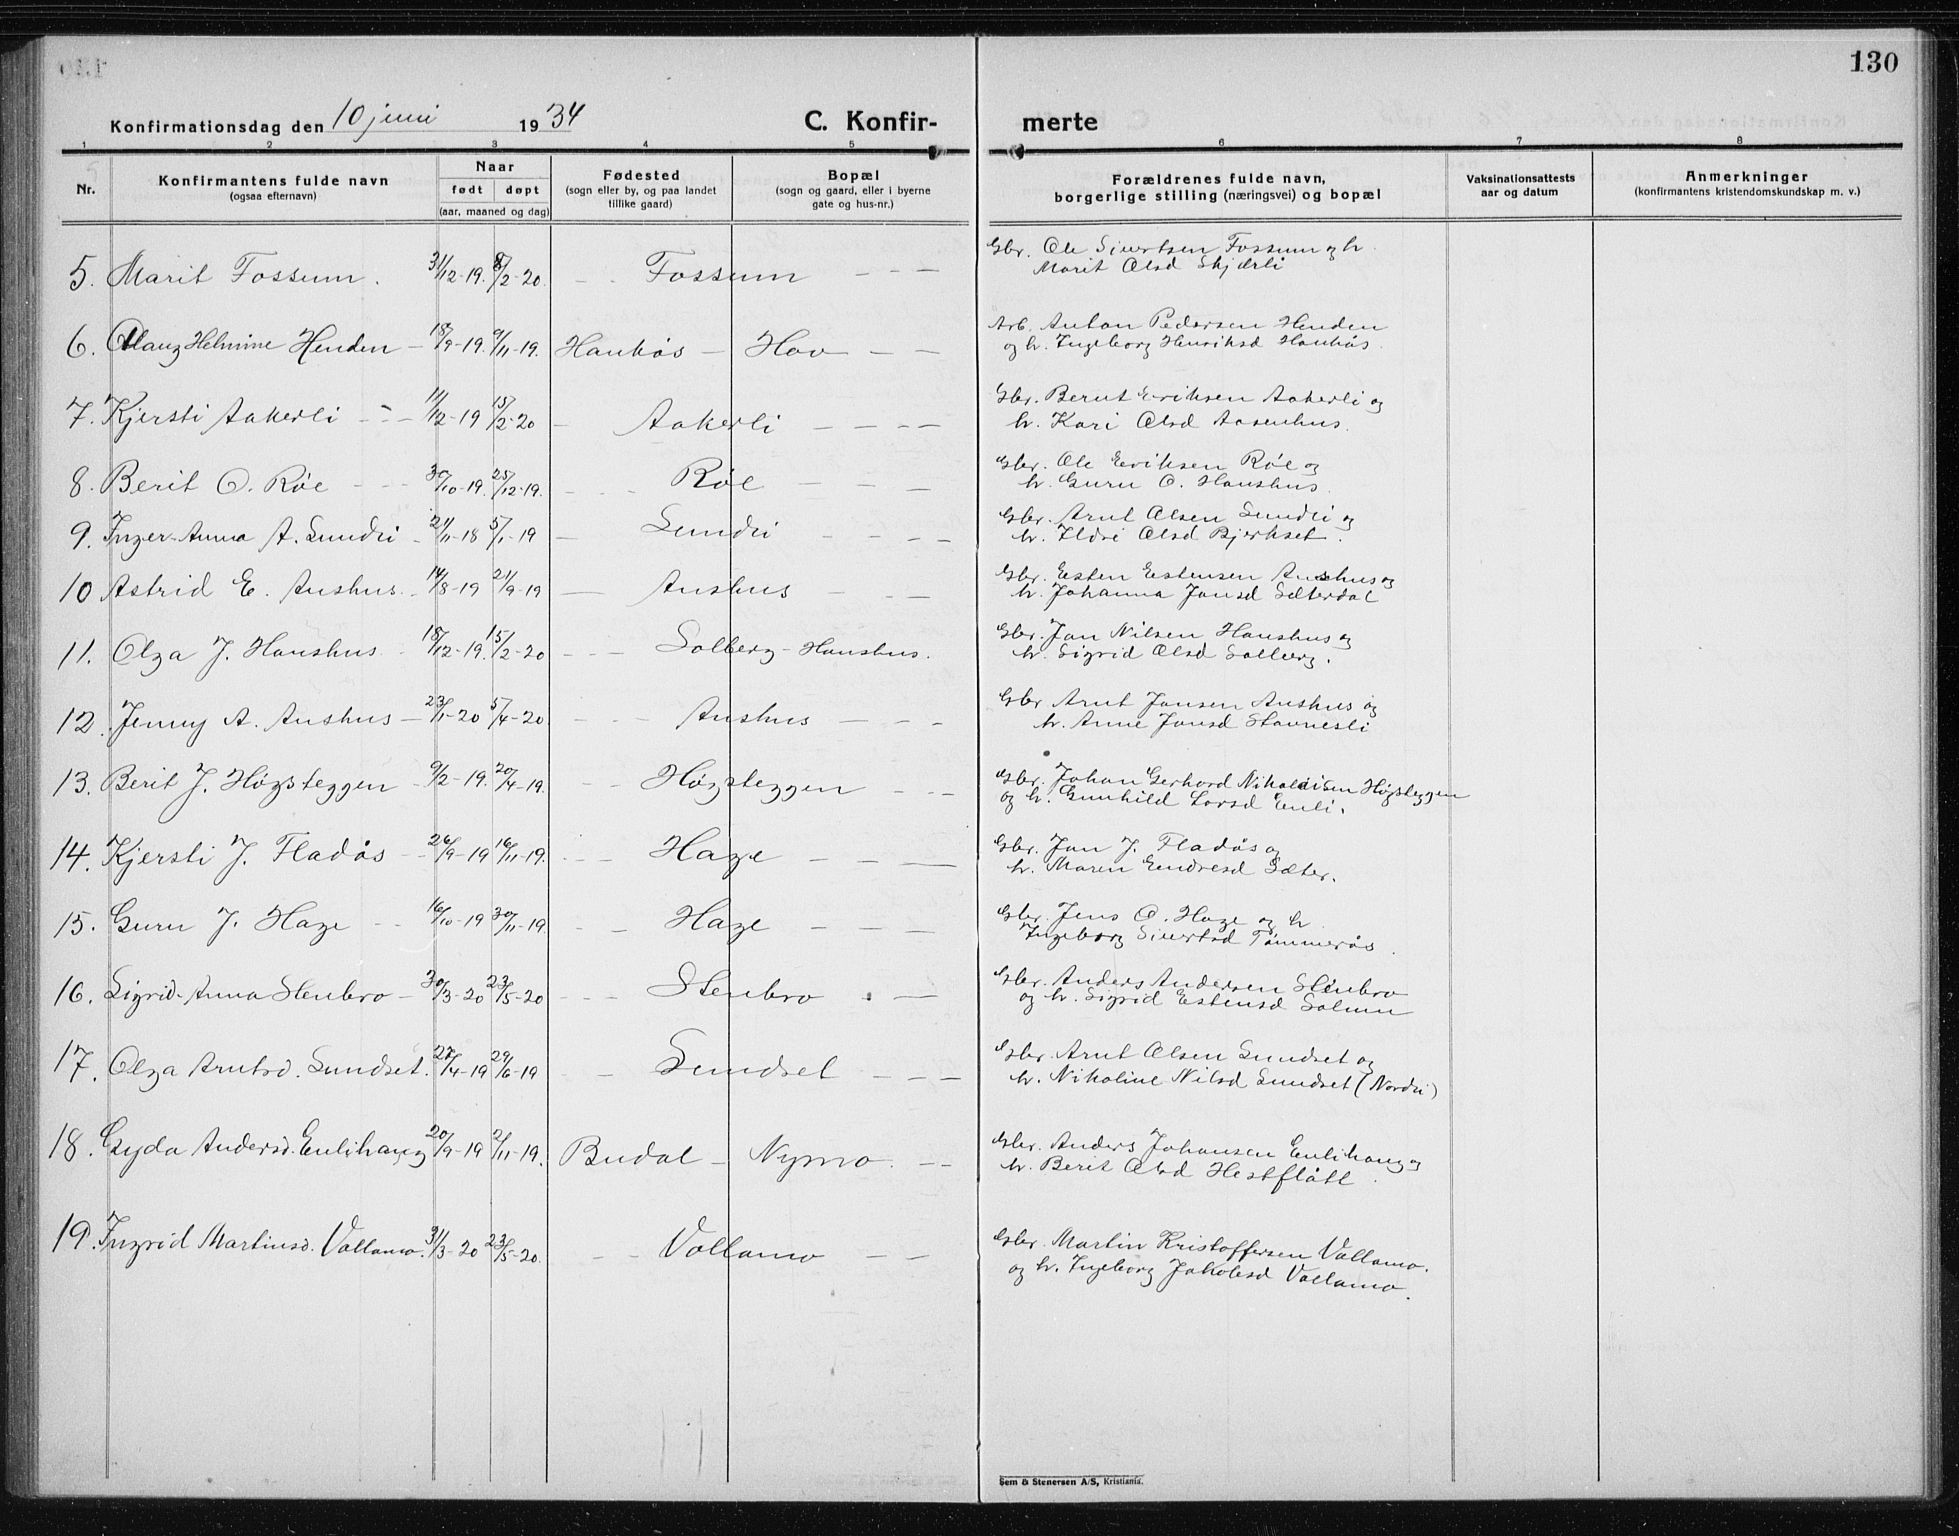 130
Konfirmationsdag den 10 juni 1934 C. Konfir- merte
1 2 3 4 5 6 7 8
Nr. Konfirmantens fulde navn (ogsaa efternavn) Naar født døpt (aar, maaned og dag) Fødested (sogn eller by, og paa landet tillike gaard) Bopæl (sogn og gaard, eller i byerne gate og hus-nr.) Forældrenes fulde navn, borgerlige stilling (næringsvei) og bopæl Vaksinationsattests aar og datum Anmerkninger (konfirmantens kristendomskundskap m. v.)
5. Marit Fossum. 31/12-19. 8/2-20. Fossum Gbr. Ole Sivertsen Fossum og h.
Marit Olsd Skjærli
6. Helmine Henden 18/9-19. 9/11-19. Haukås Hov Arb. Anton Pedersen Henden
og h. Ingeborg Henriksd Haukås
7. Kjersti Aakerli 11/12-19 15/2-20 Aakerli Gbr. Berut Eriksen Aakerli og
h. Kari Olsd Aasenhus.
8. Berit O. Røe 30/10-19. 25/12-19. Røe Gbr. Ole Eriksen Røe og
h. Guru O. Haushus
9. Inger-Anna A. Sundli 21/11-18 5/1-19 Sundli Gbr. Arnt Olsen Sundli og
h. Ildri Olsd Bjerkset.
10 Astrid E. Aushus 14/8-19 21/9-19 Aushus Gbr. Esten Estensen Aushus og
h. Johanna Jonsd Sæterdal
11. Olga J. Haushus 18/12-19. 15/2-20 Solberg-Haushus. Gbr. Jon Nilsen Haushus og
h. Sigrid Olsd Solberg.
12. Jenny A. Aushus 23/1-20 5/4-20 Aushus Gbr Arnt Jonsen Aushus og
h. Anne Jonsd Stavnesli
13. Berit J. Høgsteggen 9/2-19. 20/4-19. Høgsteggen Gbr. Johan Gerhard Nikolaisen Høgsteggen
og h. Gunhild Larsd Enli.
14. Kjersti J. Fladås 26/9-19 16/11-19. Hage Gbr. Jon J. Fladås og
h. Maren Endresd Sæter.
15. Guru J. Hage 16/10-19 30/11-19. Hage Gbr. Jens O. Hage og h.
Ingeborg Sivertsd Tømmerås.
16. Sigrid-Anna Stenbro 30/3-20 23/5-20 Stenbro Gbr. Anders Andersen Stenbro
og h. Sigrid Estensd Solum
17. Olga Arntsd. Sundset. 27/4-19 29/6-19 Sundset Gbr. Arnt Olsen Sundset og
h. Nikoline Nilsd Sundset (Nordli)
18. Gyda Andersd. Enlihaug 20/9-19 2/11-19. Budal Nymo Gbr. Anders Johansen Enlihaug og
h. Berit Olsd Hestflått.
19. Ingrid Martinsd. Vollamo. 31/3-20 23/5-20. Vollamo Gbr. Martin Kristoffersen Vollamo.
og h. Ingeborg Jakobsd Vollamo.
Sem & Stenersen A/S, Kristiania.